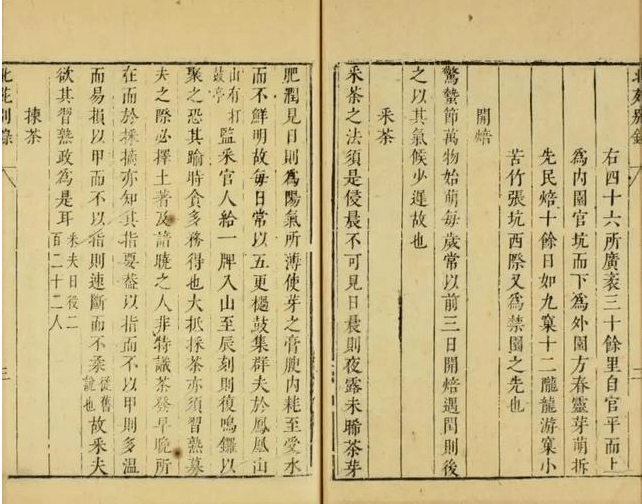 北苑別錄
二
右四十六所廣袤三十餘里自官平而上
為內園官坑而下為外園方春靈芽萌拆
先民焙十餘日如九窠十二隴龍游窠小
苦竹張坑西際又為禁園之先也
開焙
驚蟄節萬物始萌每歲常以前三日開焙遇閏則後
之以其氣候少遲故也
采茶
采茶之法須是侵晨不可見日晨則夜露未晞茶芽
肥潤見日則為陽氣所薄使芽之膏腴內耗至受水
而不鮮明故每日常以五更撾鼓集群夫於鳳凰山
山有打鼓亭監采官人給一牌入山至辰刻則復鳴鑼以
聚之恐其踰時貪多務得也大抵採茶亦須習熟募
夫之際必擇土著及諳曉之人非特識茶發早晚所
在而於採摘亦知其指要葢以指而不以甲則多溫
而易損以甲而不以指則速斷而不柔從舊說也故采夫
欲其習熟政為是耳采夫日役二百二十二人
揀茶
北苑別錄
三